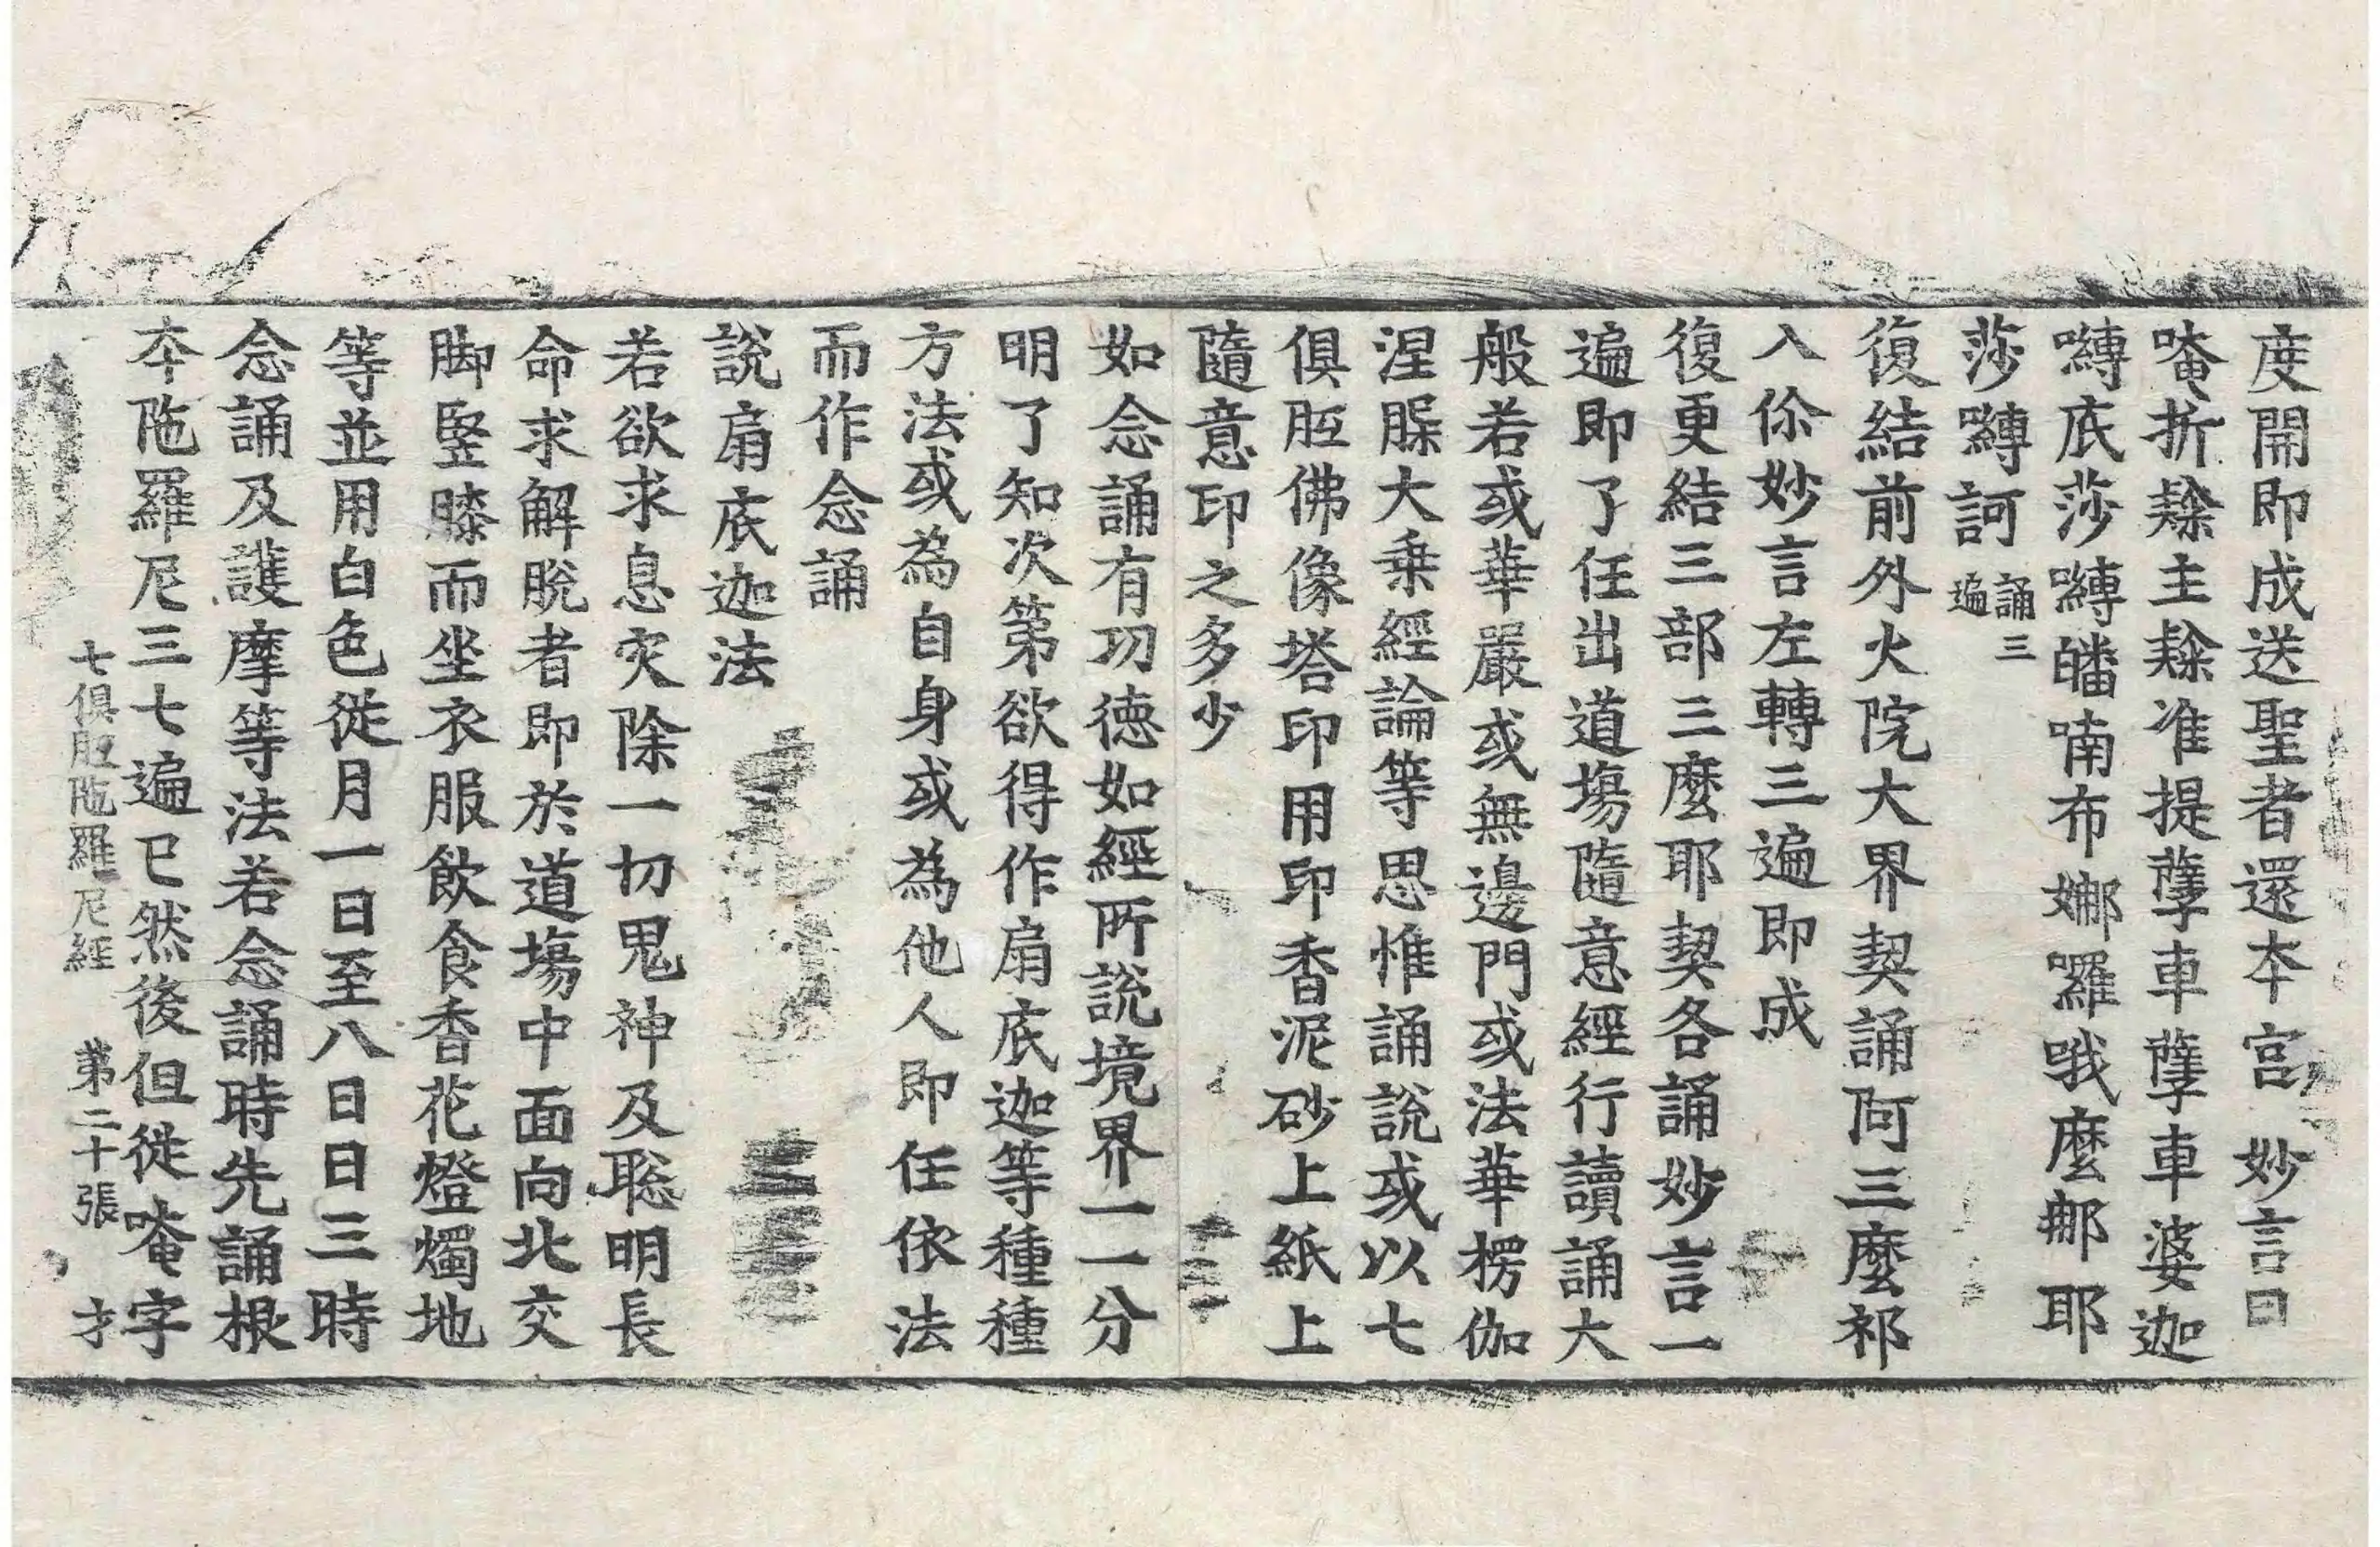 度開即成送聖者還本宮 妙言曰
唵折隷主隷准提孽車孽車婆迦
嚩底莎嚩皤喃布娜囉哦麼那耶
莎嚩訶 誦三遍
復結前外火院大界契誦阿三麼祁
入你妙言左轉三遍即成
復更結三部三麼耶契各誦妙言一
遍即了任出道場隨意經行讀誦大
般若或華嚴或無邊門或法華楞伽
涅槃大乗經論等思惟誦說或以七
俱胝佛像塔印用印香泥砂上紙上
隨意印之多少
如念誦有功德如經所說境界一一分
明了知次第欲得作扇底迦等種種
方法或為自身或為他人即任依法
而作念誦
說扇底迦法
若欲求息灾除一切鬼神及聡明長
命求解脫者即於道場中面向北交
脚竪膝而坐衣服飲食香花燈燭地
等並用白色從月一日至八日日三時
念誦及護摩等法若念誦時先誦根
本陁羅尼三七遍已然後但從唵字
七俱胝陁羅尼經 第二十張 才